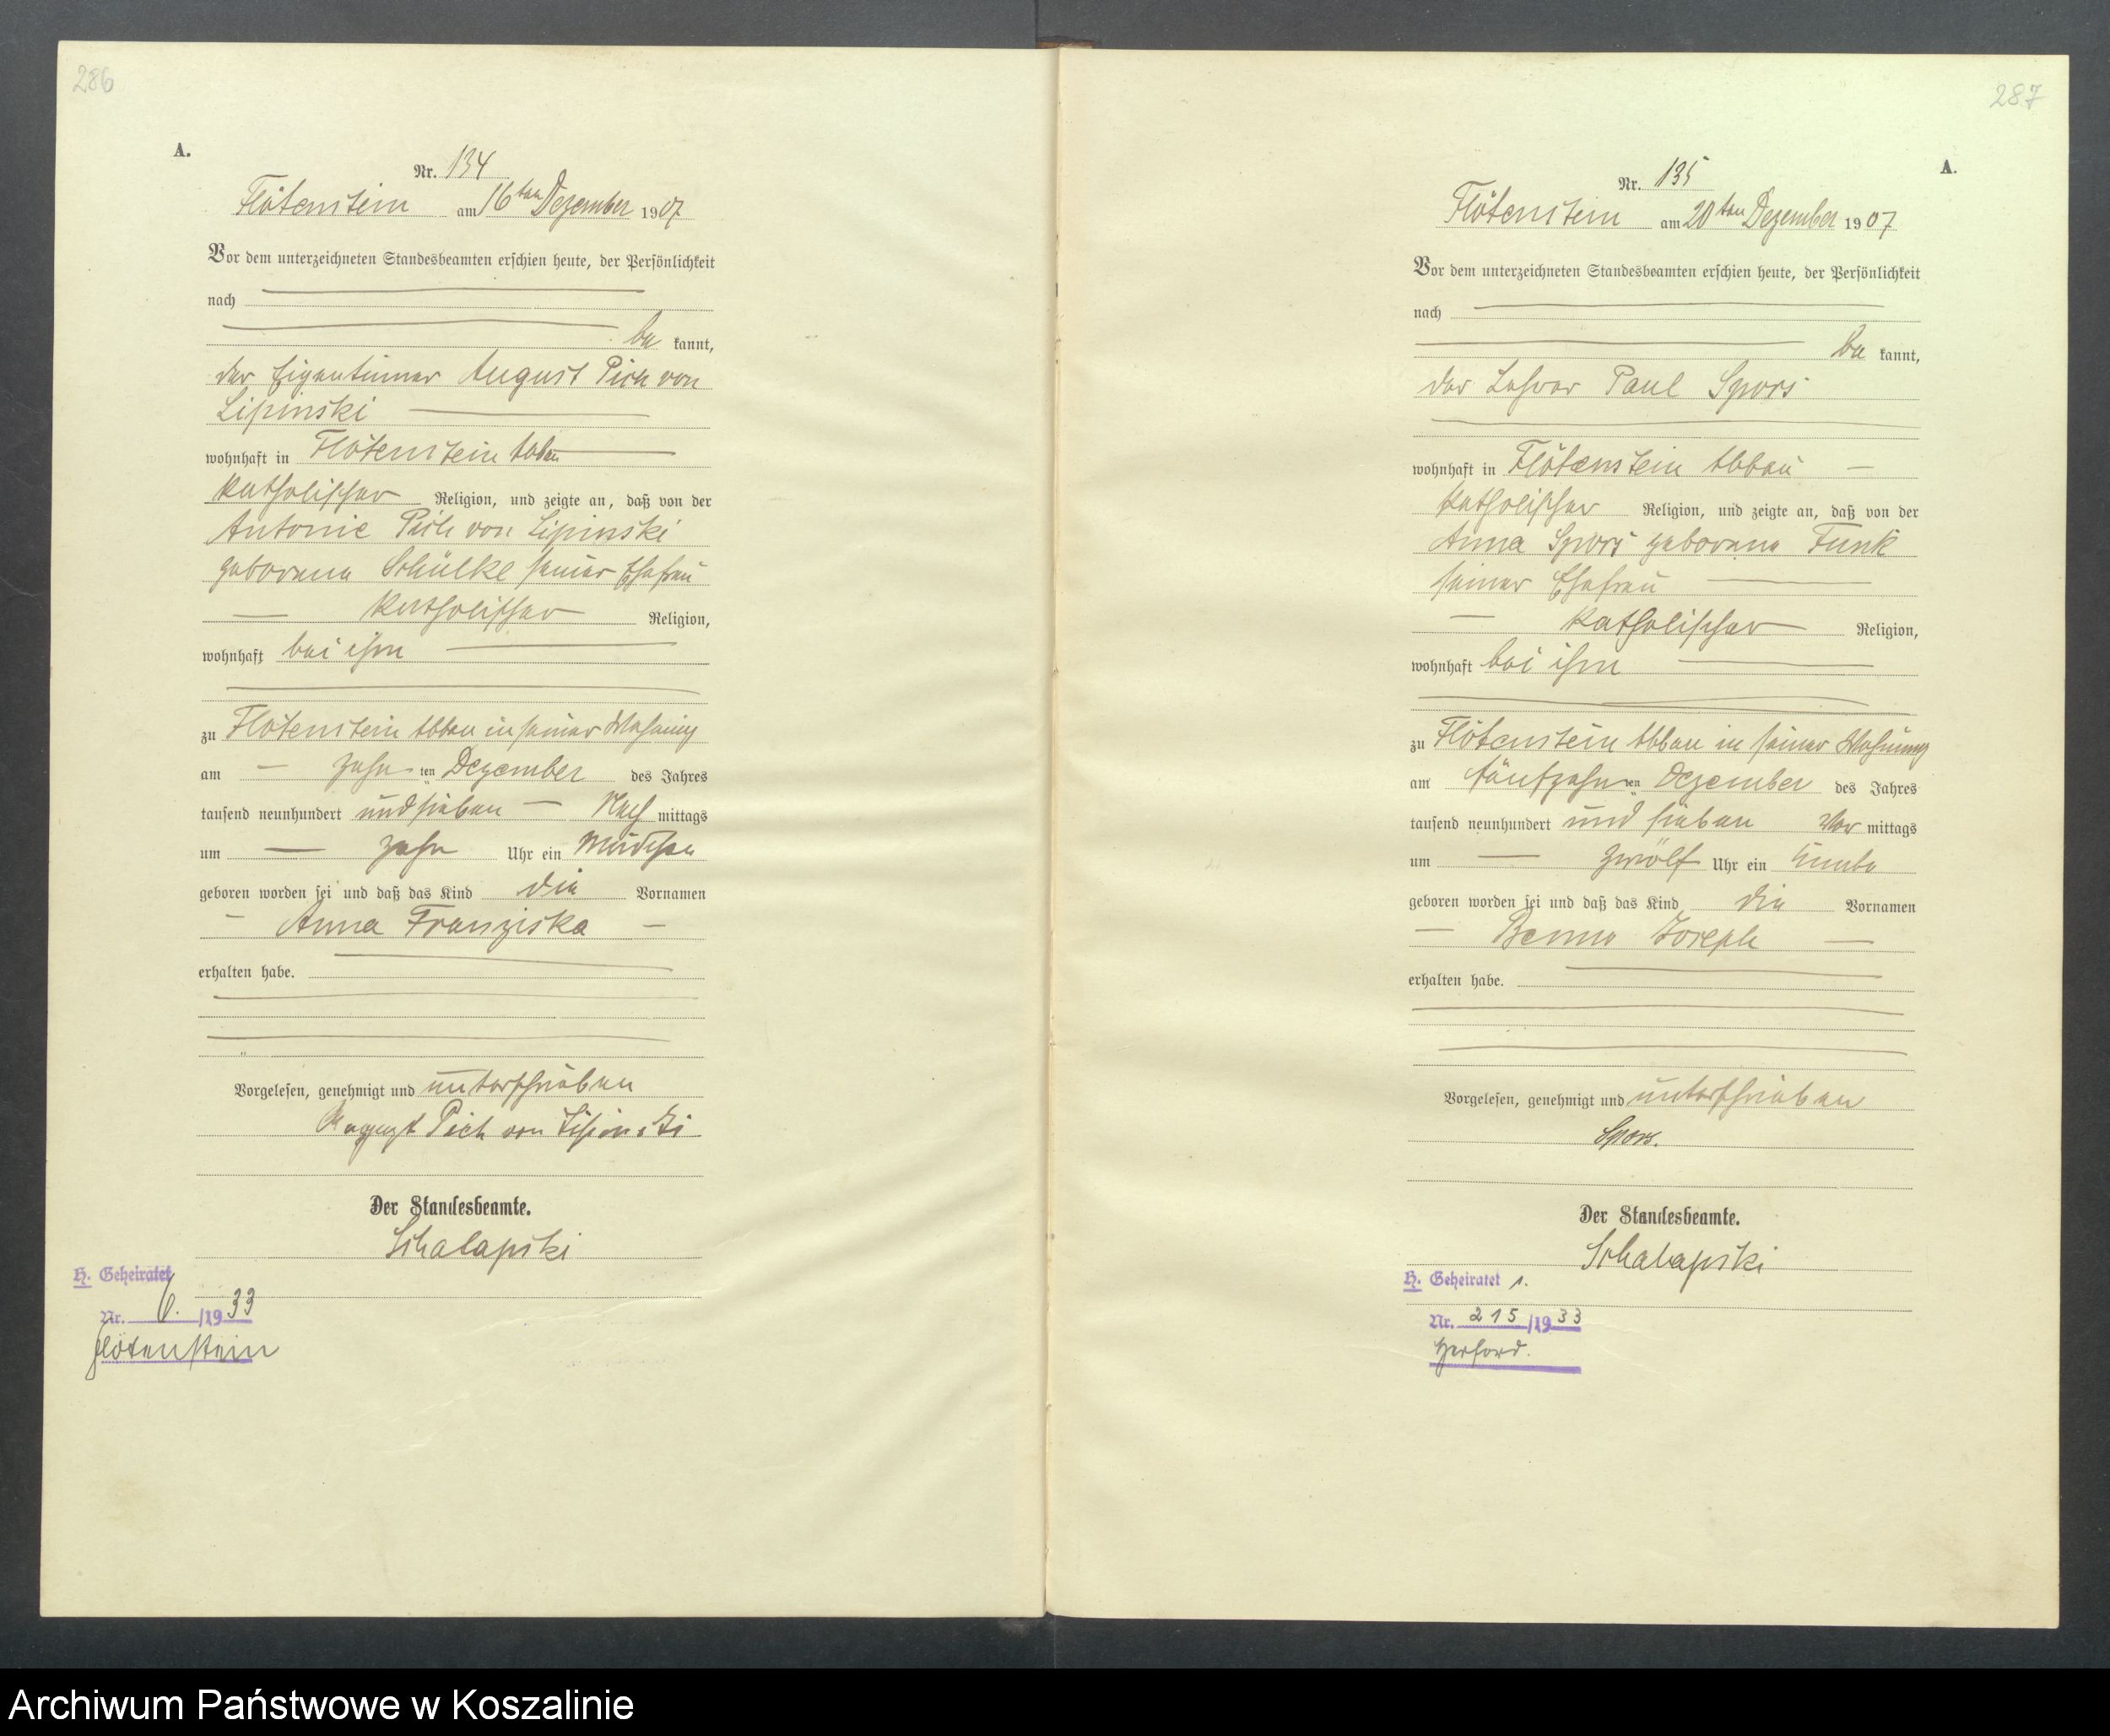 286
A.
Nr. 134
Flötenstein am 16ten Dezember 1907
Vor dem unterzeichneten Standesbeamten erschien heute, der Persönlichkeit
nach
be kannt,
der Eigentümer August Pich von
Lipinski
wohnhaft in Flötenstein Abbau
katholischer Religion, und zeigte an, daß von der
Antonie Pich von Lipinski
geborene Schülke seiner Ehefrau
katholischer Religion,
wohnhaft bei ihm
zu Flötenstein Abbau in seiner Wohnung
am zehn ten Dezember des Jahres
tausend neunhundert und sieben Nach mittags
um zehn Uhr ein Mädchen
geboren worden sei und daß das Kind die Vornamen
Anna Franziska
erhalten habe.
Vorgelesen, genehmigt und unterschrieben
August Pich von Lipinski
Der Standesbeamte.
Schalapski
H. Geheiratet
Nr. 6. /1933
Flötenstein
287
A.
Nr. 135
Flötenstein am 20ten Dezember 1907
Vor dem unterzeichneten Standesbeamten erschien heute, der Persönlichkeit
nach
be kannt,
der Lehrer Paul Spors
wohnhaft in Flötenstein Abbau
katholischer Religion, und zeigte an, daß von der
Anna Spors geborene Funk
seiner Ehefrau
katholischer Religion,
wohnhaft bei ihm
zu Flötenstein Abbau in seiner Wohnung
am fünfzehn ten Dezember des Jahres
tausend neunhundert und sieben Vor mittags
um zwölf Uhr ein Knabe
geboren worden sei und daß das Kind die Vornamen
Benno Joseph
erhalten habe.
Vorgelesen, genehmigt und unterschrieben
Spors.
Der Standesbeamte.
Schalapski
H. Geheiratet 1.
Nr. 215/1933
Herford.
Archiwum Państwowe w Koszalinie